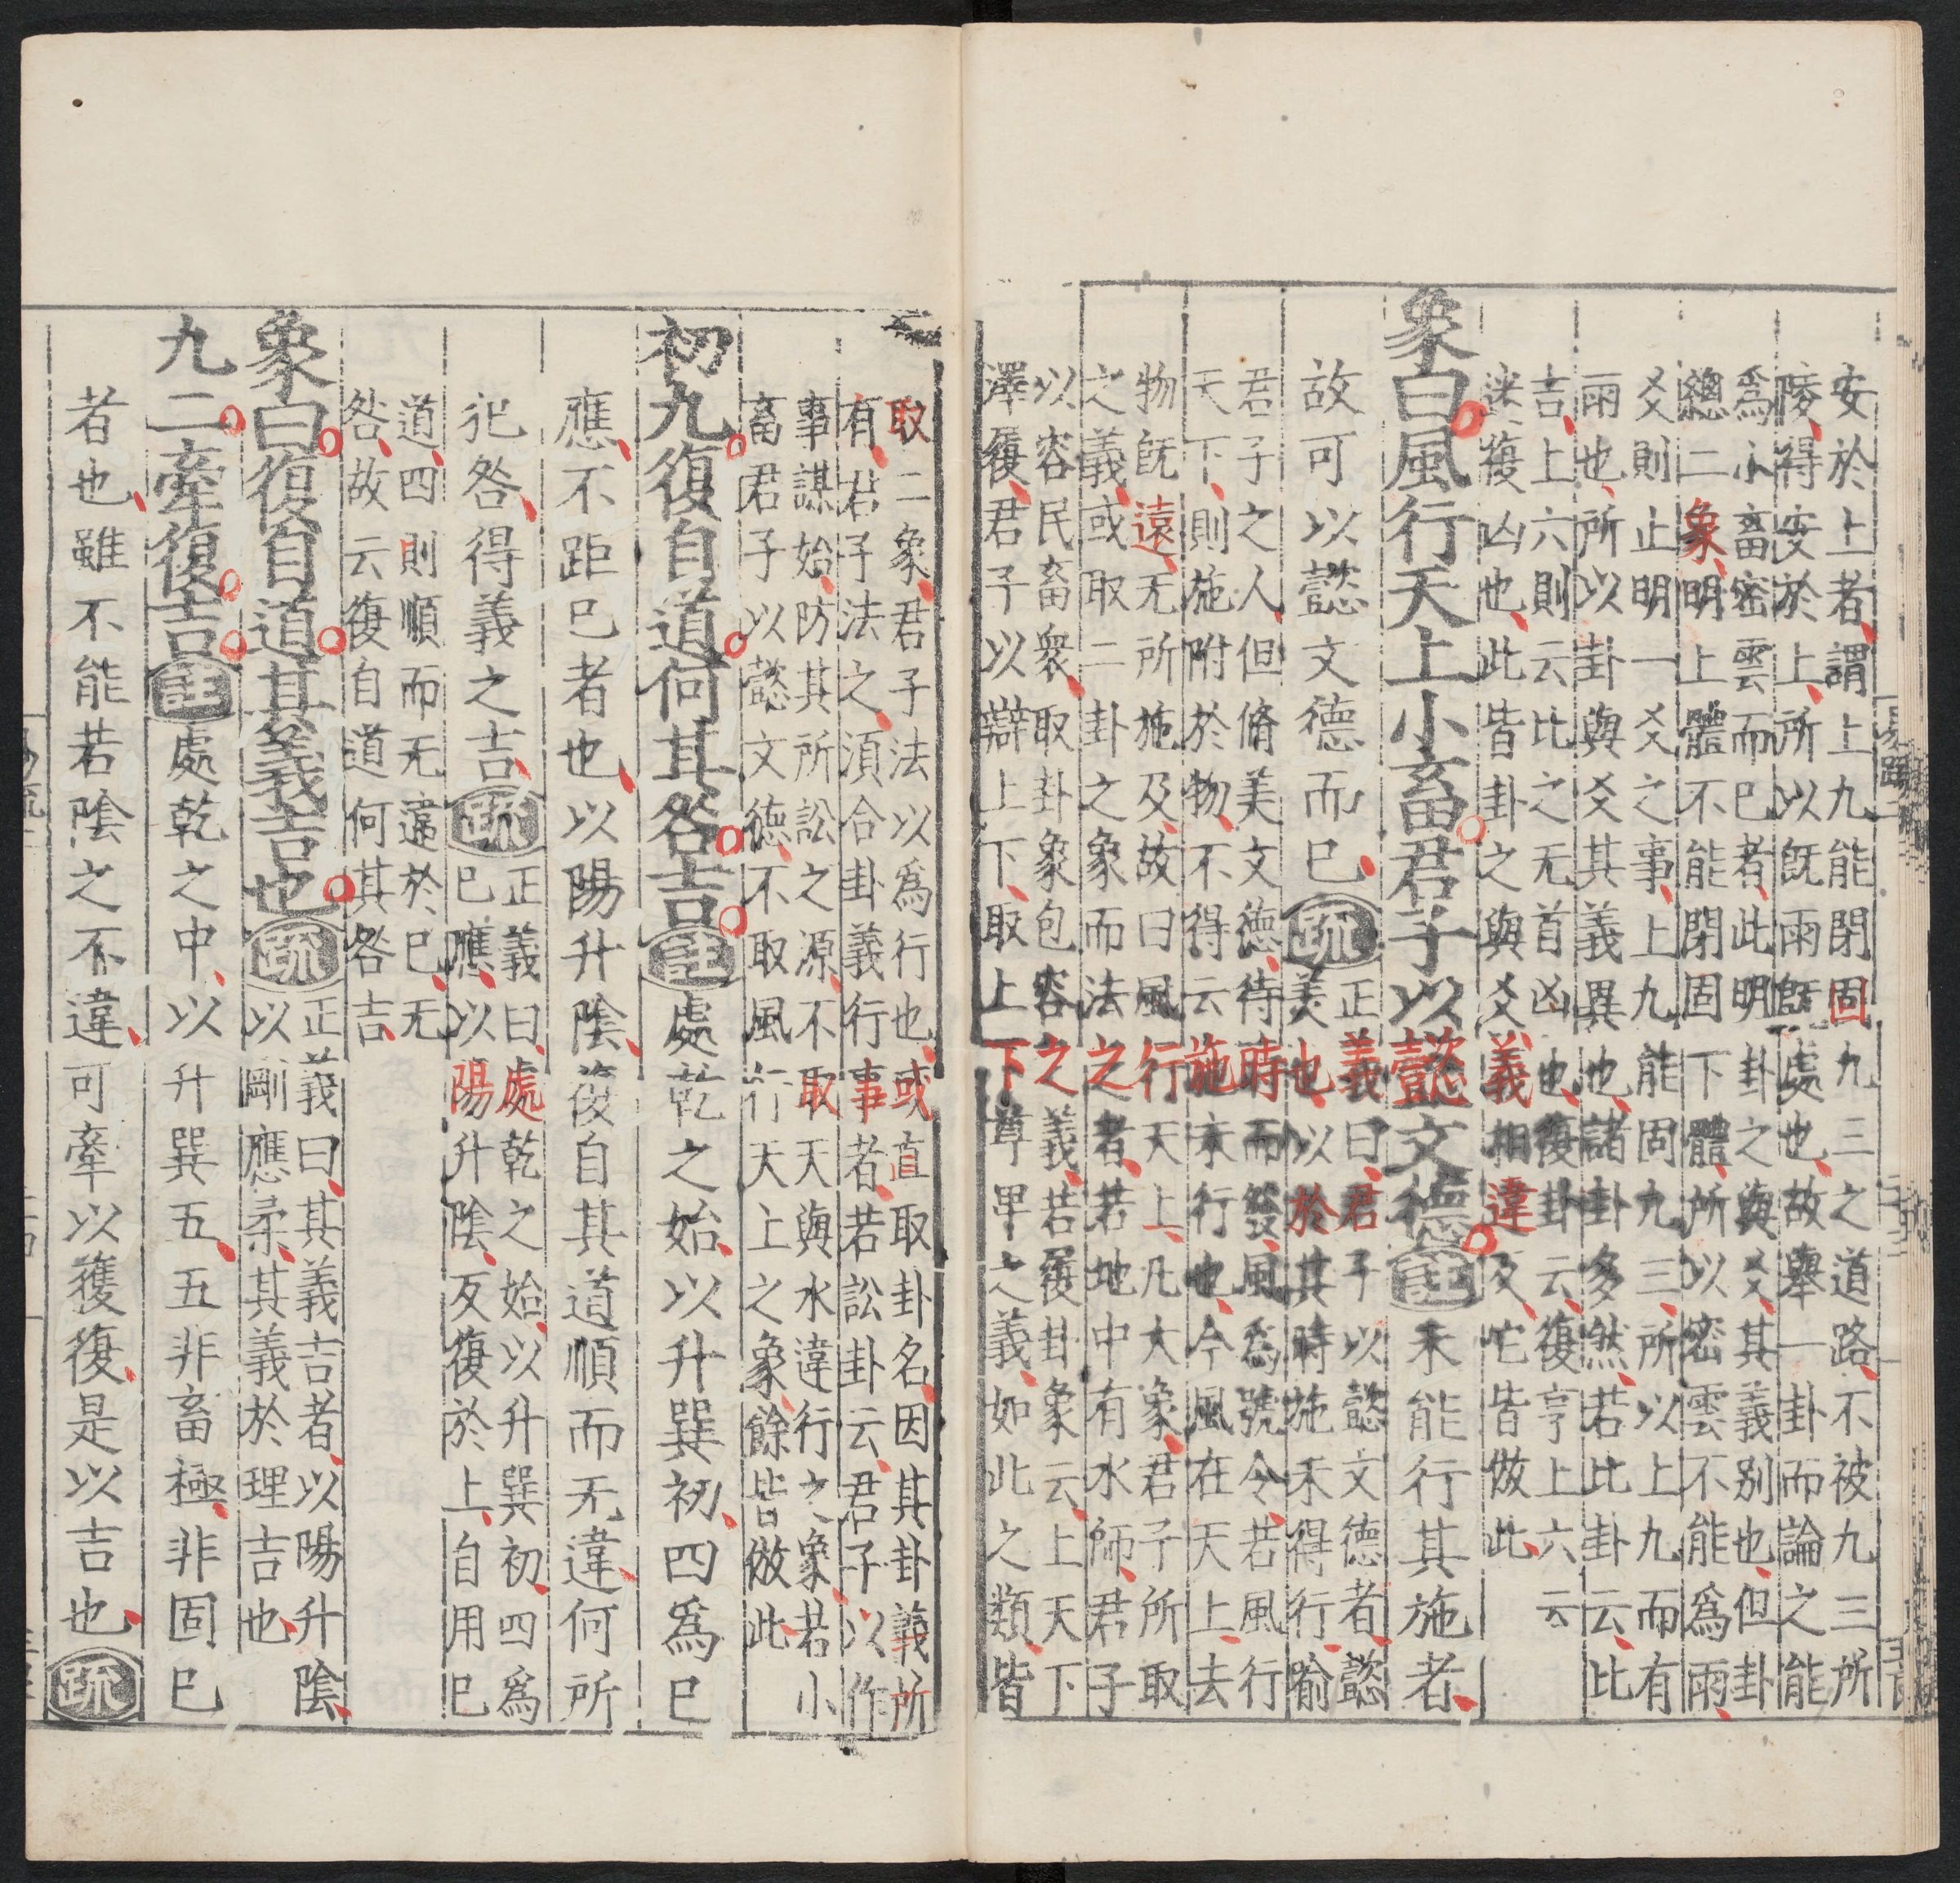 安於上者謂上九能閉固九三之道路不被九三所
陵得安於上所以旣雨旣處也故舉一卦而論之能
爲小畜密雲而已者此明卦之與爻其義別也但卦
總二象明上體不能閉固下體所以密雲不能爲雨
爻則止明一爻之事上九能固九三所以上九而有
雨也所以卦與爻其義異也諸卦多然若比卦云比
吉上六則云比之无首凶也復卦云復亨上六云
迷復凶也此皆卦之與爻義相違反它皆倣此
象曰風行天上小畜君子以懿文德註未能行其施者
故可以懿文德而巳疏正義曰君子以懿文德者懿
美也以於其時施未得行喻
君子之人但脩美文德待時而發風爲號令若風行
天下則施附於物不得云施未行也今風在天上去
物旣遠无所施及故曰風行天上凡大象君子所取
之義或取二卦之象而法之者若地中有水師君子
以容民畜衆取卦象包容之義若履卦象云上天下
澤履君子以辯上下取上下尊卑之義如此之類皆
取二象君子法以爲行也或直取卦名因其卦義所
有君子法之須合卦義行事者若訟卦云君子以作
事謀始防其所訟之源不取天與水違行之象若小
畜君子以懿文德不取風行天上之象餘皆倣此
初九復自道何其咎吉註處乾之始以升巽初四爲巳
應不距巳者也以陽升陰復自其道順而无違何所
犯咎得義之吉疏正義曰處乾之始以升巽初四爲
巳應以陽升陰反復於上自用巳
道四則順而无違於巳无
咎故云復自道何其咎吉
象曰復自道其義吉也疏正義曰其義吉者以陽升陰
以剛應柔其義於理吉也
九二牽復吉註處乾之中以升巽五五非畜極非固巳
者也雖不能若陰之不違可牽以獲復是以吉也疏